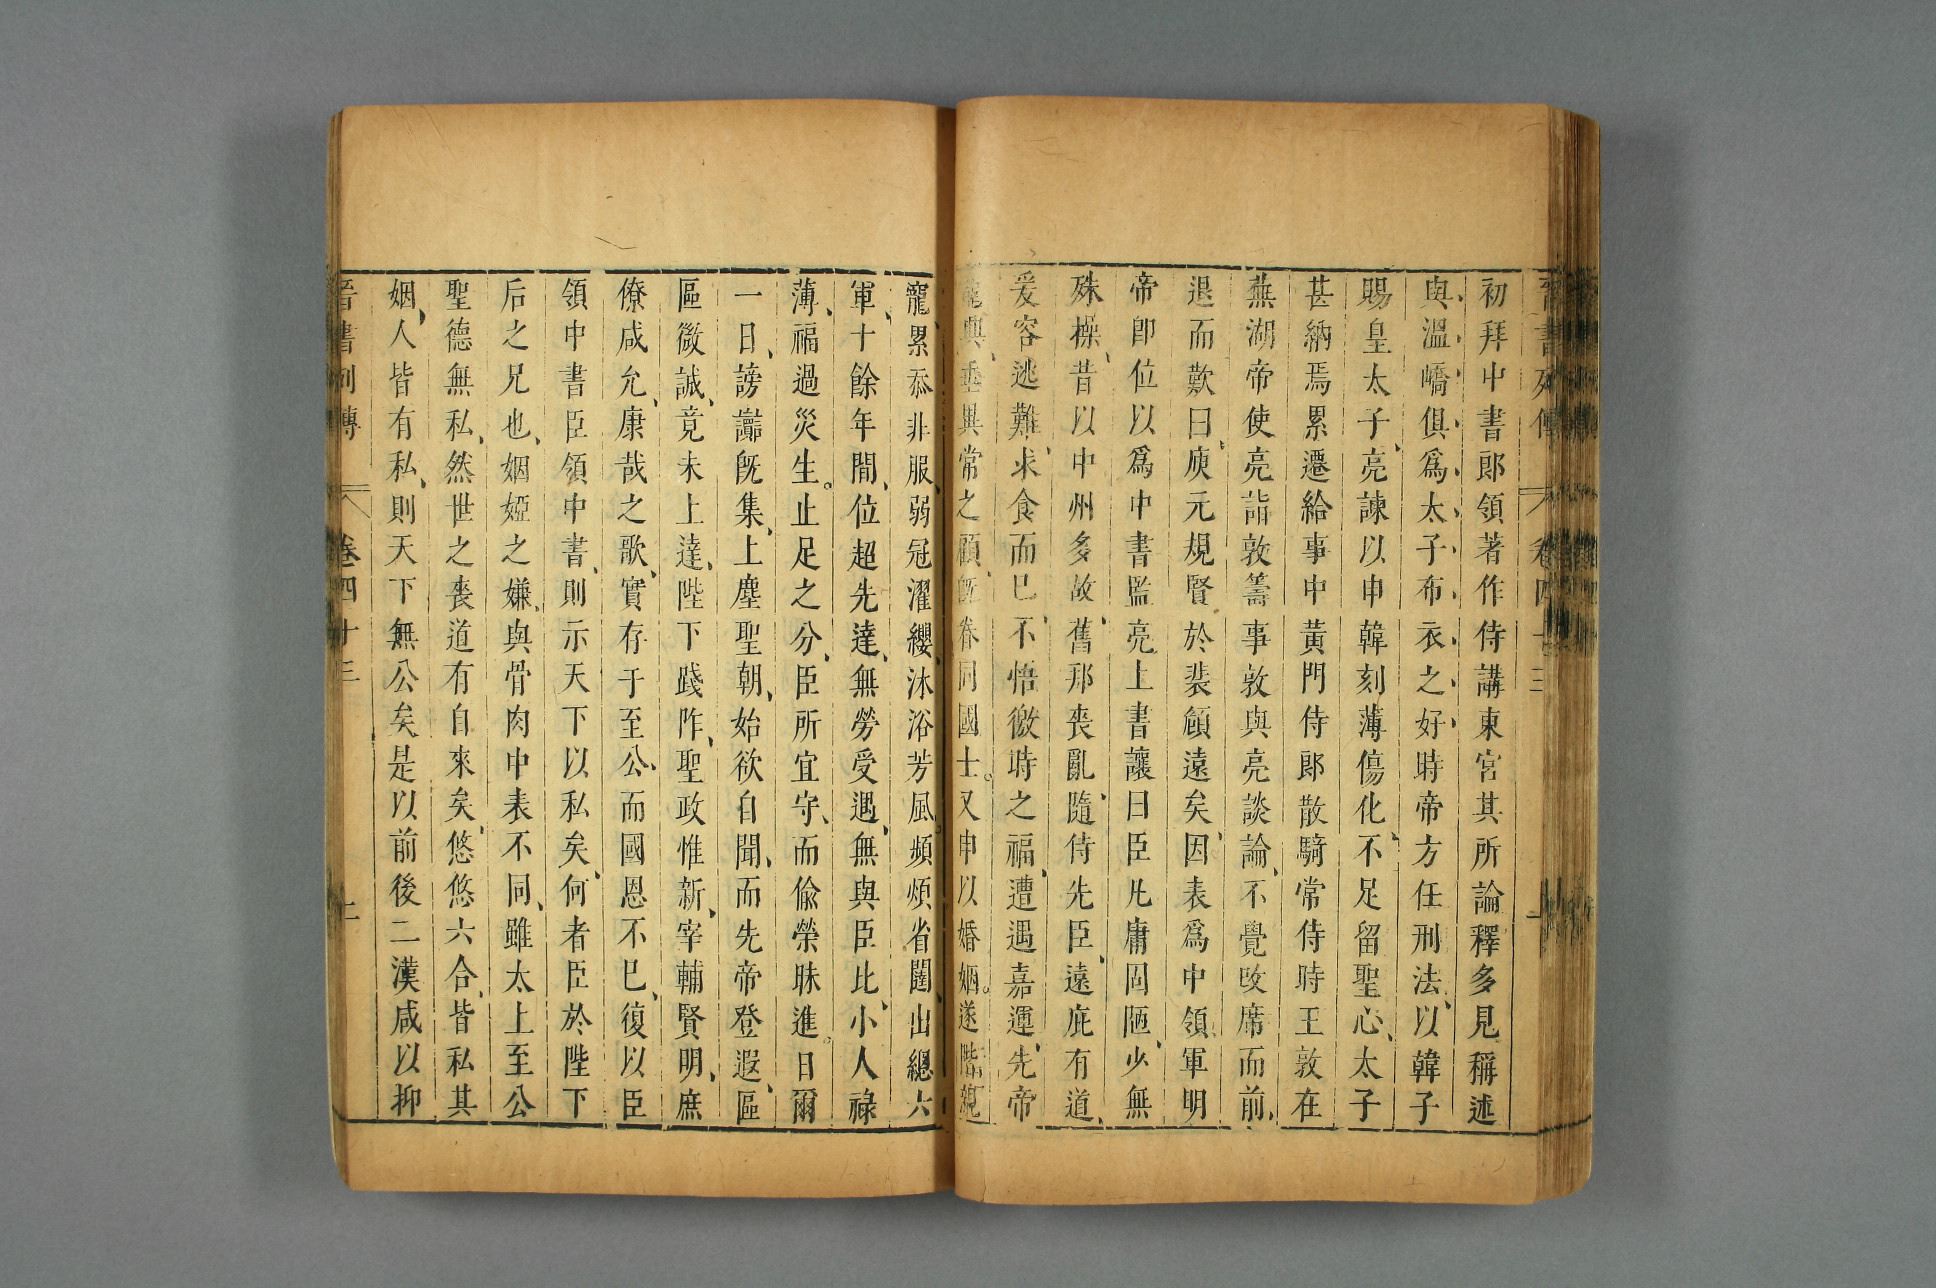 晉書列傳 卷四十三 一
初拜中書郎領著作侍講東宮其所論釋多見稱述
與溫嶠俱爲太子布衣之好時帝方任刑法以韓子
賜皇太子亮諫以申韓刻薄傷化不足留聖心太子
甚納焉累遷給事中黃門侍郎散騎常侍時王敦在
蕪湖帝使亮詣敦籌事敦與亮談論不覺改席而前
退而歎曰庾元規賢於裴頠遠矣因表爲中領軍明
帝卽位以爲中書監亮上書讓曰臣凡庸固陋少無
殊操昔以中州多故舊邦喪亂隨侍先臣遠庇有道
爰容逃難求食而已不悟徼時之福遭遇嘉運先帝
龍興垂異常之顧旣眷同國士又申以婚姻遂階親
寵累忝非服弱冠濯纓沐浴芳風頻煩省闥出總六
軍十餘年間位超先達無勞受遇無與臣比小人祿
薄福過災生止足之分臣所宜守而偸榮昧進日爾
一日謗讟旣集上塵聖朝始欲自聞而先帝登遐區
區微誠竟未上達陛下踐阼聖政惟新宰輔賢明庶
僚咸允康哉之歌實存于至公而國恩不已復以臣
領中書臣領中書則示天下以私矣何者臣於陛下
后之兄也姻婭之嫌與骨肉中表不同雖太上至公
聖德無私然世之喪道有自來矣悠悠六合皆私其
姻人皆有私則天下無公矣是以前後二漢咸以抑
晉書列傳 卷四十三 二